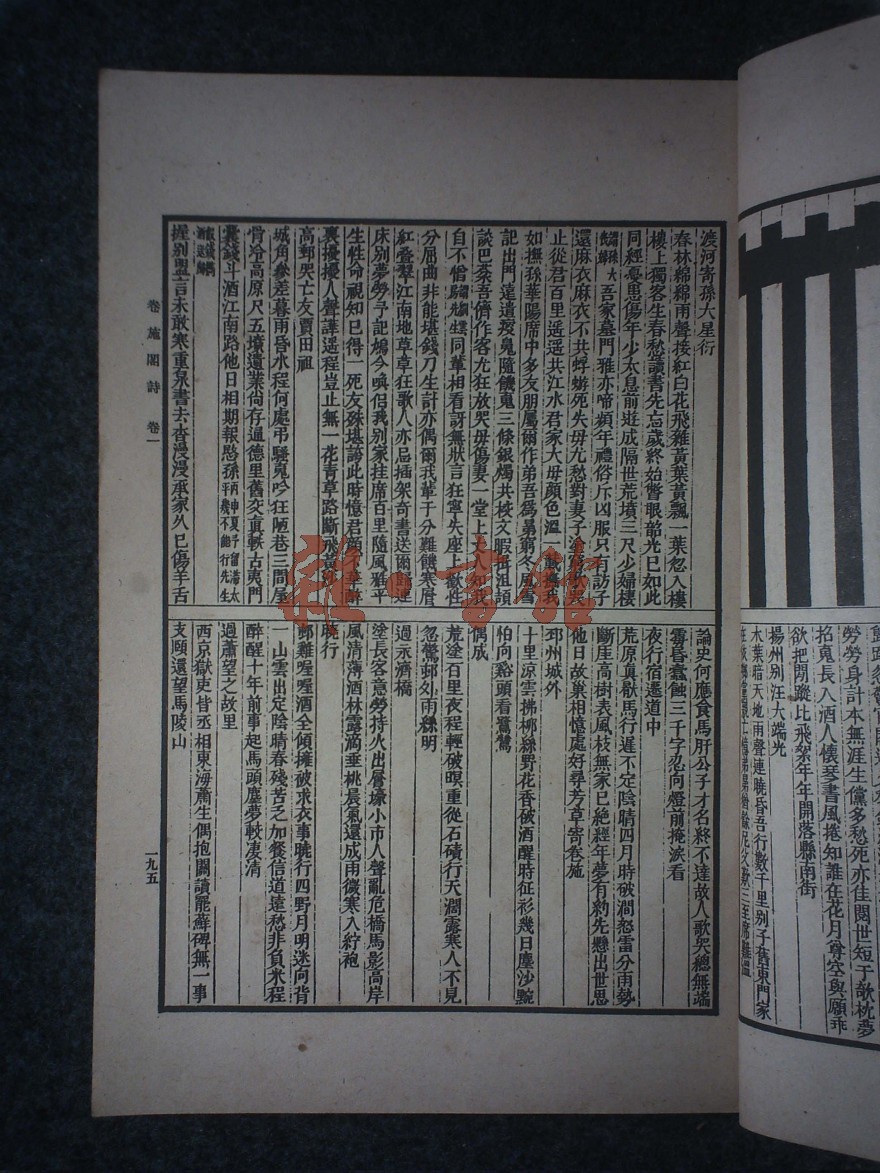 渡河寄孫大星衍
春林綿綿雨聲接紅白花飛雜黃葉黃飄一葉忽入樓
樓上獨客生春愁讀書先忘歲終始瞥眼韶光已如此
同經憂患傷年少太息前遊成隔世荒墳三尺少婦棲
吾家墓門雅亦啼頻年禮俗斥凶服只有訪子
還麻衣麻衣不共蜉蝣死失毋尤愁對妻子
止從君百里遥遥共江水君家大毋顏色溫一載撫我
如撫孫華陽席中多友朋屬爾作弟吾為晜窮冬風雪
記出門遠道疲鬼隨饑鬼三條銀燭共校文暇
談巴菽吾儕作客尤狂放哭毋傷妻一堂上丈人知我
自不偕同輩相看訝無狀言狂寧失座上歡性
分屈曲非能堪錢刀生計亦偶爾我輩于分難饑寒
紅疊翠江南地草草狂歌人亦忌插架奇書送爾歸連
床別夢勞予記鳩今喚侣我別家挂席百里隨風雅平
生性命視知己得一死友殊堪誇此時憶君
裏擾擾人聲譁遥程豈止無一花青草路斷飛黃沙
高郵哭亡友賈田祖
城角參差暮雨昏水程何處弔騷鬼吟狂陋巷三間屋
骨冷高原尺五墳遺業尚存通德里舊交直軼古夷門
囊錢斗酒江南路他日相期報慜孫
握別盟言未敢寒重泉書去杳漫漫承家久已傷羊舌
論史何應食馬肝公子才名終不達故人歌哭總無端
零昏蠹蝕三千字忍向燈前掩淚看
夜行宿遷道中
荒原真歇馬行遲不定陰晴四月時破澗怒雷分雨勢
斷崖高樹表風枝無家已絶經年夢有約先懸出世思
他日故巢相憶處好尋芳草寄卷施
邳州城外
十里涼雲拂栁絲野花香破酒醒時征衫幾日塵沙黦
怕向谿頭看鷺鷥
偶成
荒塗百里夜程輕破暝重從石磧行天濶露寒人不見
忽驚郵外雨絲明
過永濟橋
塗長客意勞持火出層壕小市人聲亂危橋馬影高岸
風清薄酒林露滴垂桃晨氣還成雨微寒入紵袍
曉行
郵雞喔喔酒全傾擁破求衣事曉行四野月明迷向背
一山雲出定陰晴春殘苦乏加餐信道遠愁非負米程
醉醒十年前事起馬頭塵夢較凄清
過蕭望之故里
西京獄吏皆丞相東海蕭生偶抱關讀罷蘚碑無一事
支頤還望馬陵山
卷施閣詩 卷一
一九五
勞勞身計本無涯生儻多愁死亦佳閱世短于欹枕夢
招鬼長入酒人懷琴書風捲知誰在花月尊空與願乖
欲把閒蹤比飛絮年年開落縣南街
揚州別汪大端光
木葉暗天地雨聲連曉昏吾行數千里別子舊東門家